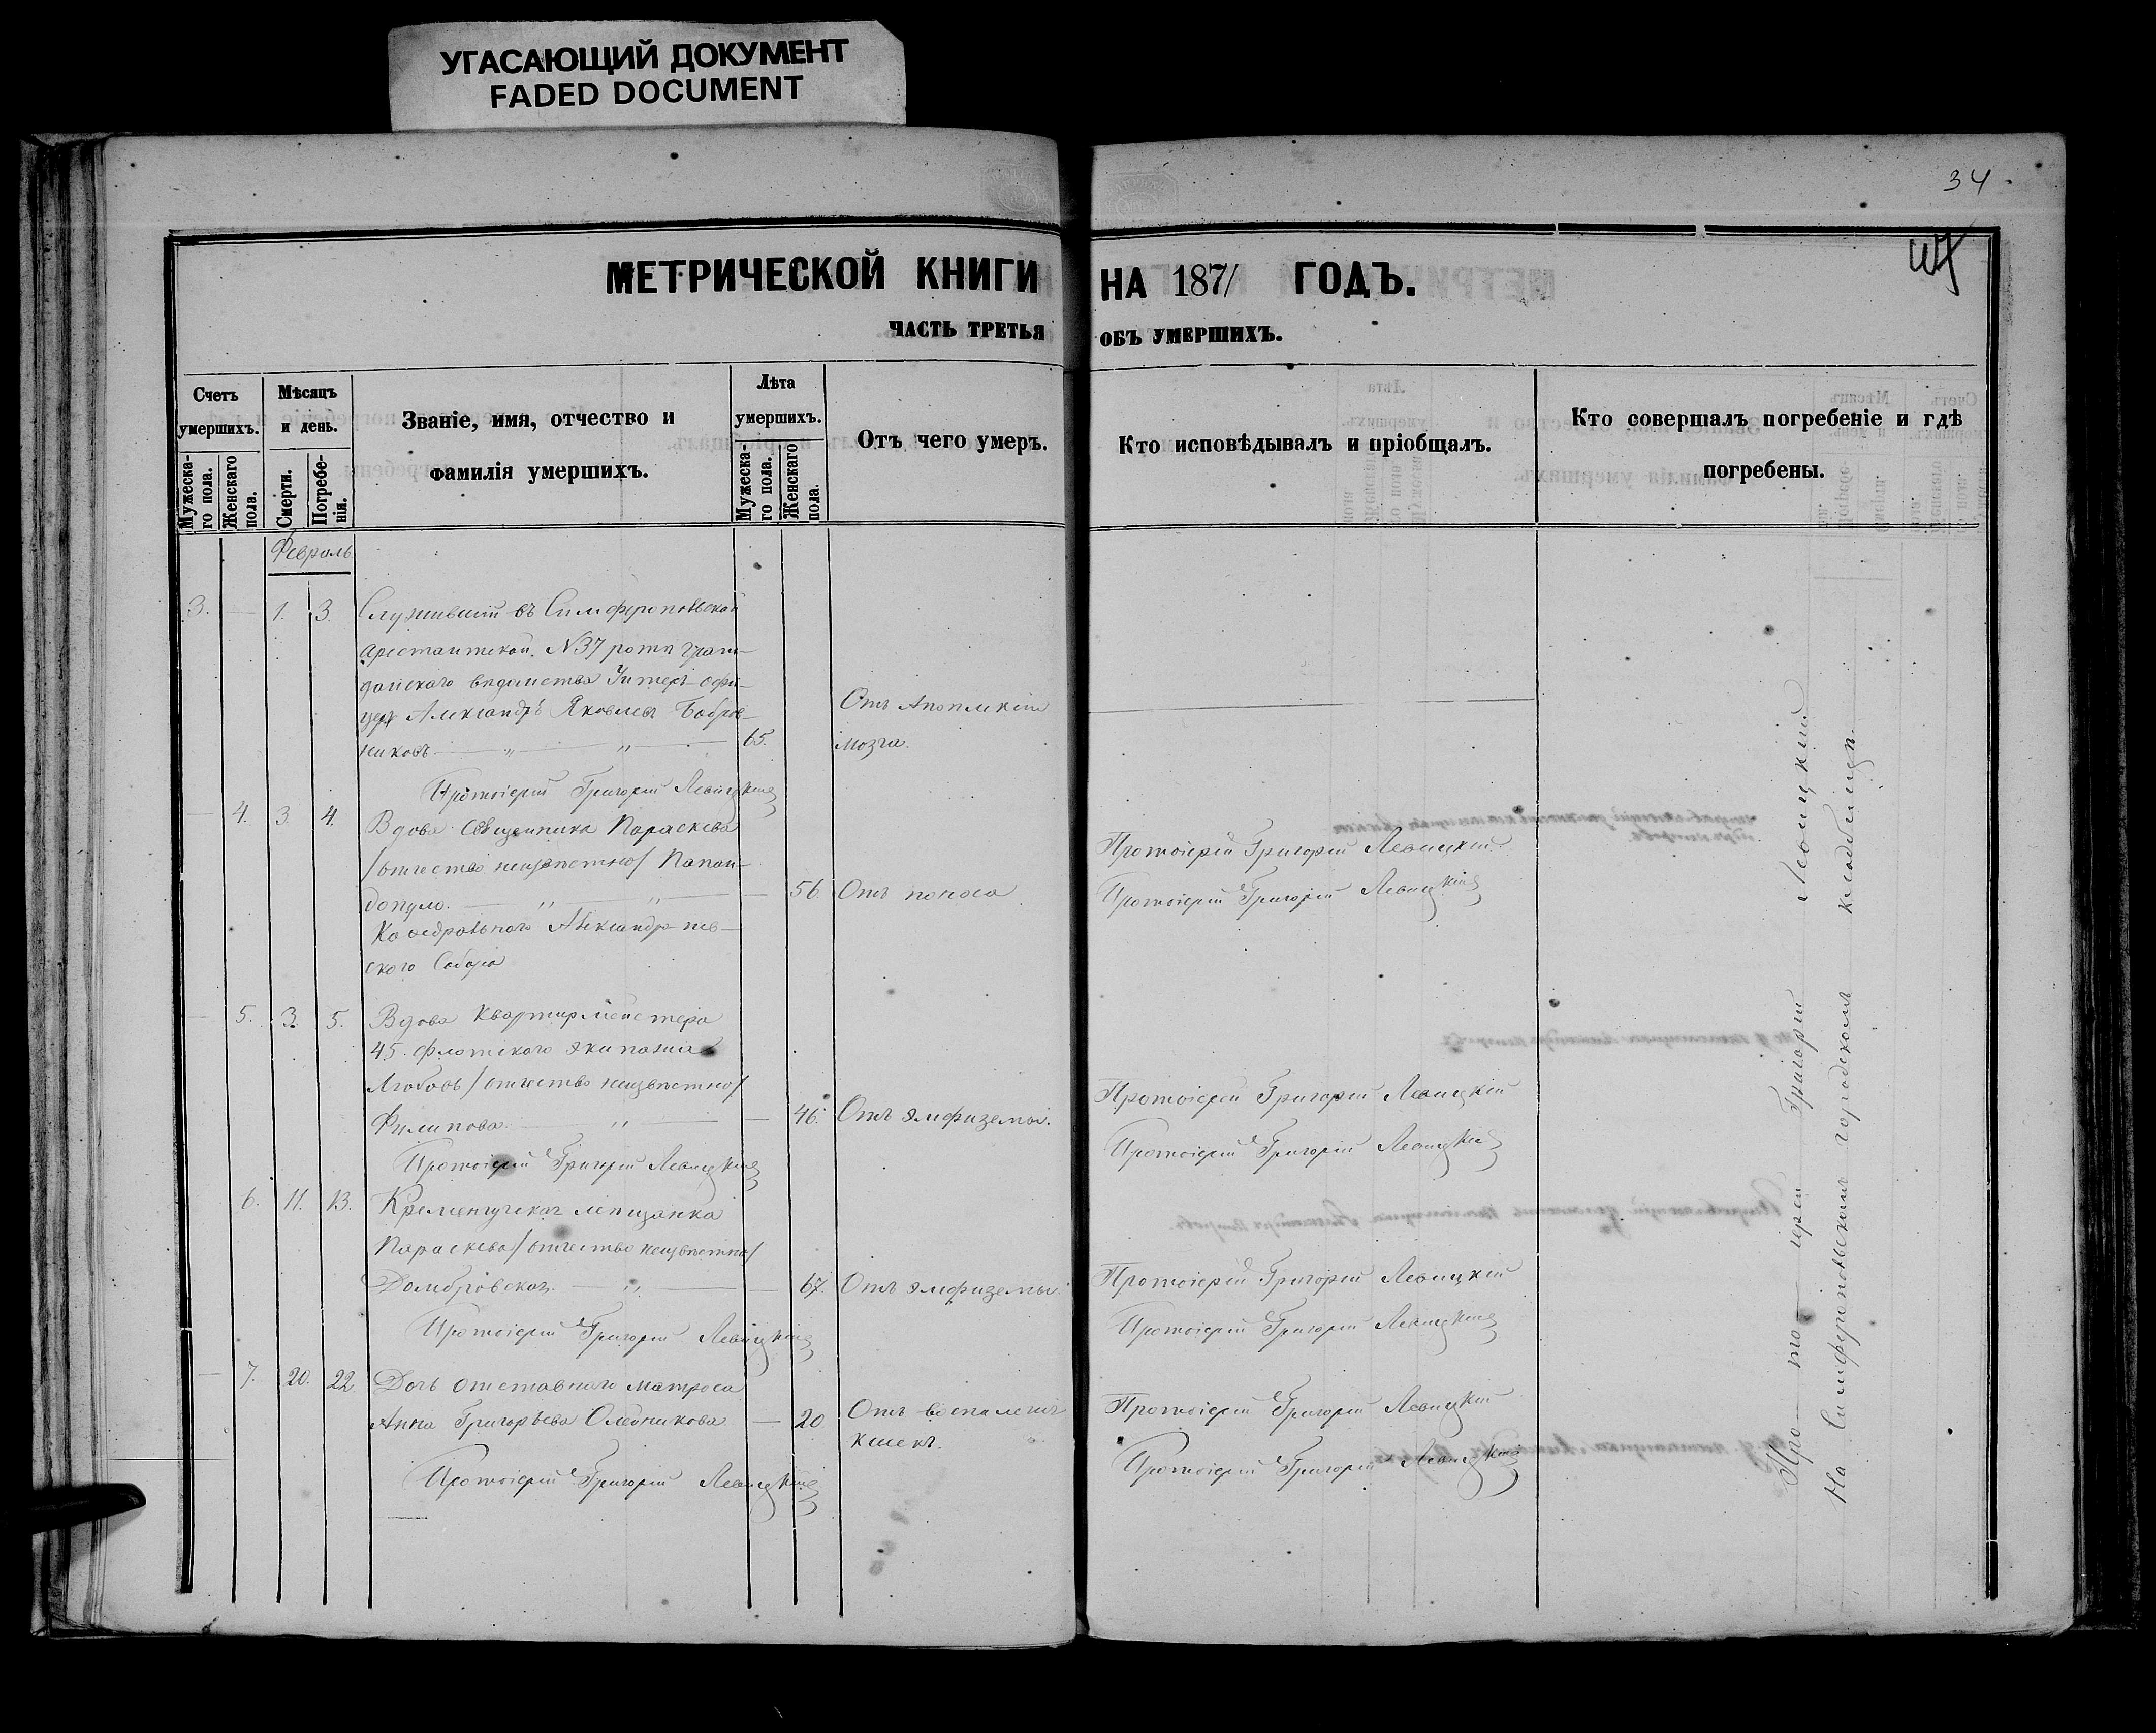 УГАСАЮЩИЙ ДОКУМЕНТ
FADED DOCUMENT
34
МЕТРИЧЕСКОЙ КНИГИ НА 1871 ГОДЪ.
ЧАСТЬ ТРЕТЬЯ ОБЪ УМЕРШИХЪ.
Счетъ умершихъ.
Мужеска-го пола.
Женскаго пола.
Мѣсяцъ и день.
Смерти.
Погребе-нія.
Званіе, имя, отчество и
фамилія умершихъ.
Лѣта умершихъ.
Мужеска-го пола.
Женскаго пола.
Отъ чего умеръ.
Кто исповѣдывалъ и пріобщалъ.
Кто совершалъ погребеніе и гдѣ
погребены.
Февраль
3. 1. 3. Служившій въ Симферопольской
арестантской № 37 ротѣ граж-
данскаго вѣдомства Унтеръ-офи-
церъ Александръ Яковлевъ Бобров-
никовъ. 65. Отъ Апоплексіи
мозга.
Протоіерей Григорій Левицкій
4. 3. 4. Вдова Священника Параскева
/отчество неизвѣстно/ Папан-
допуло. 56. Отъ поноса
Каѳедральнаго Александро-нев-
скаго Собора
Протоіерей Григорій Левицкій
Протоіерей Григорій Левицкій
5. 3. 5. Вдова Квартирмейстера
45. флотскаго экипажа
Любовь /отчество неизвѣстно/
Филипова. 46. Отъ эмфиземы.
Протоіерей Григорій Левицкій
Протоіерей Григорій Левицкій
Протоіерей Григорій Левицкій
6. 11. 13. Кременчугская мѣщанка
Параскева /отчество неизвѣстно/
Домбровская. 67. Отъ эмфиземы.
Протоіерей Григорій Левицкій
Протоіерей Григорій Левицкій
Протоіерей Григорій Левицкій
7. 20. 22. Дочь отставнаго матроса
Анна Григорьева Олейникова 20 Отъ воспаленія
кишекъ.
Протоіерей Григорій Левицкій
Протоіерей Григорій Левицкій
Протоіерей Григорій Левицкій
Про-то-іерей Григорій Левицкій
На Симферопольскомъ городскомъ кладбищѣ.